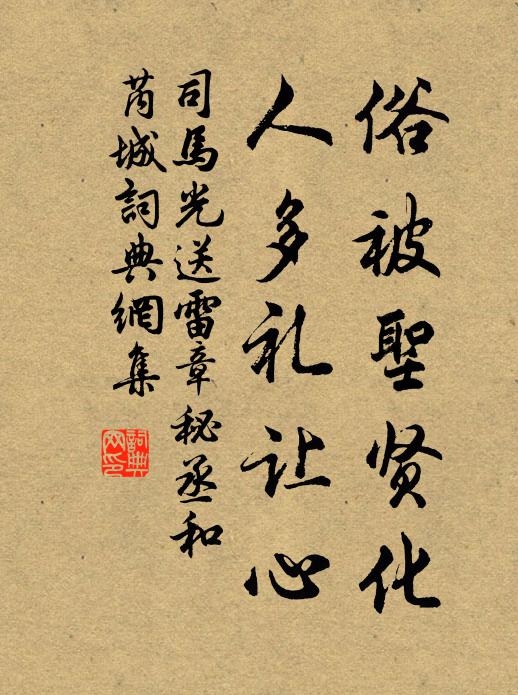 俗被聖贤化
人多礼让心
司馬光送雷章秘丞和
芮城詞典網集
詞典
网印